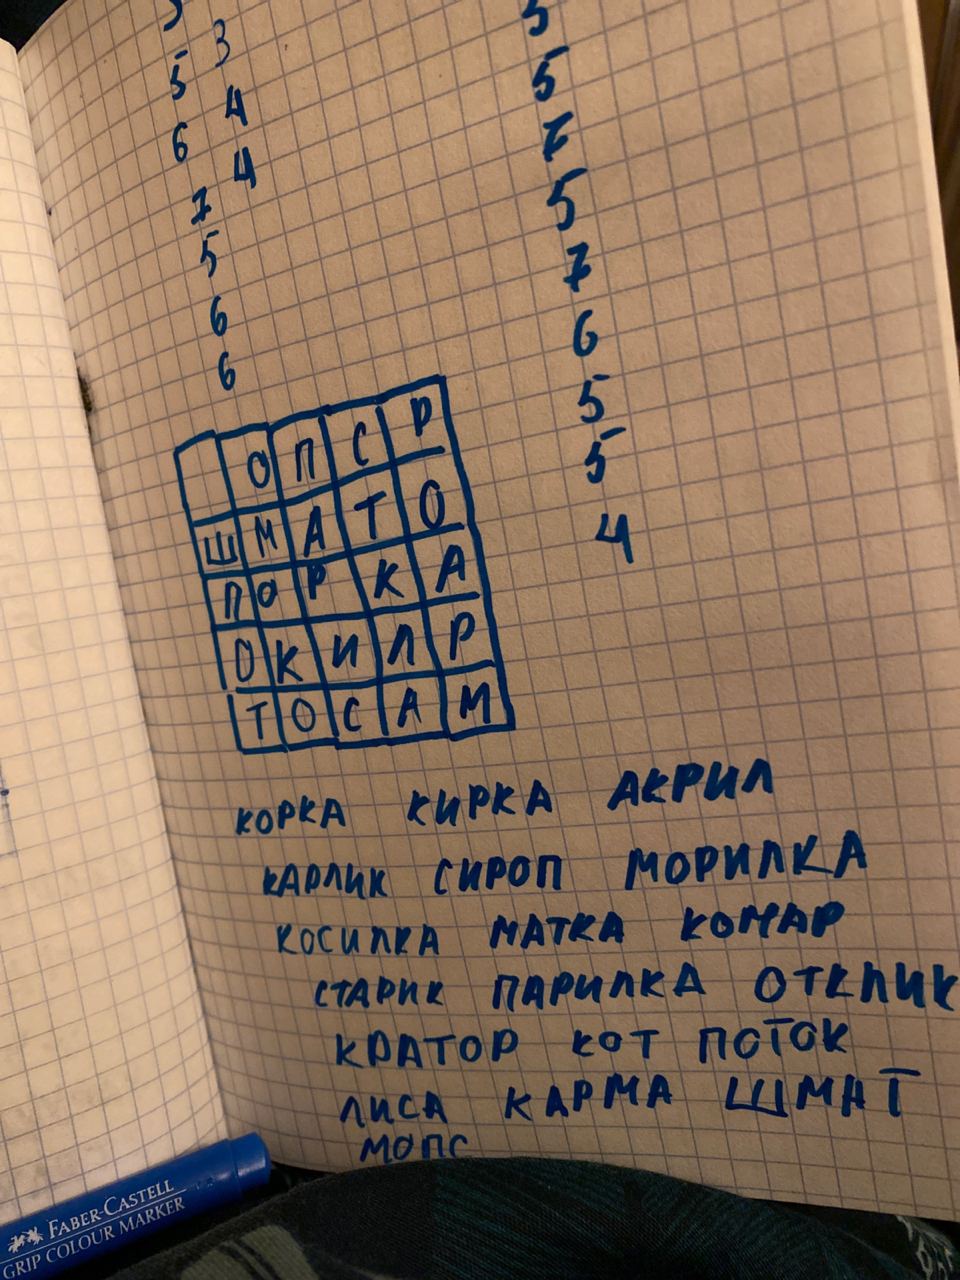 3 5
5 4 5
6 4 7
7 5
5 7
6 6
6 5
5
4
О П С Р
Ш М А Т О
П О Р К А
О К И Л Р
Т О С А М
КОРКА КИРКА АКРИЛ
КАРЛИК СИРОП МОРИЛКА
КОСИЛКА МАТКА КОМАР
СТАРИК ПАРИЛКА ОТКЛИК
КРАТОР КОТ ПОТОК
ЛИСА КАРМА ШМАТ
МОПС
FABER-CASTELL
GRIP COLOUR MARKER